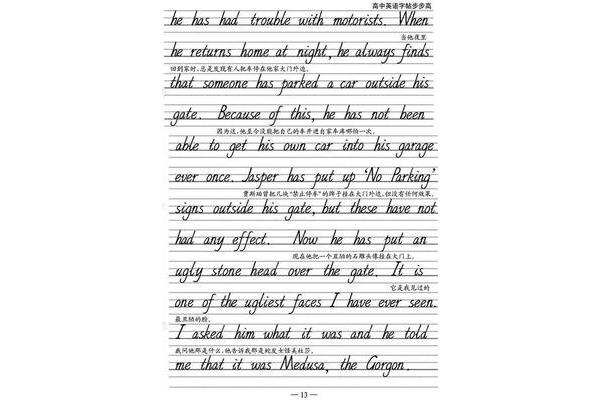 高中英语字帖步步高
he has had trouble with motorists. When
当他夜里
he returns home at night, he always finds
回到家时,总是发现有人把车停在他家大门外边。
that someone has parked a car outside his
gate. Because of this, he has not been
因为这,他至今没能把自己的车开进自家车库哪怕一次。
able to get his own car into his garage
ever once. Jasper has put up 'No Parking'
贾斯珀曾把几块“禁止停车”的牌子挂在大门外边,但没有任何效果。
signs outside his gate, but these have not
had any effect. Now he has put an
现在他把一个丑陋的石雕头像挂在大门上。
ugly stone head over the gate. It is
它是我见过的
one of the ugliest faces I have ever seen.
最丑陋的脸。
I asked him what it was and he told
我问他那是什么,他告诉我那是蛇发女怪美杜莎。
me that it was Medusa, the Gorgon.
— 13 —